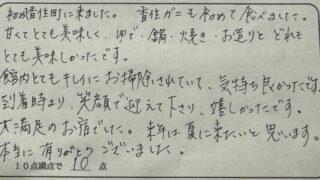 初め香住町に来ました。 香住ガニも初めて食べました。
甘くてとても美味しく、ゆで・鍋・焼き・お造りと どれも
とても美味しかったです。
館内とてもキレイにお掃除されていて、気持ち良かったです。
到着時より、笑顔で迎えて下さり、嬉しかったです。
大満足のお宿でした。来年は夏に来たいと思います。
本当に有りがとうございました。
10点満点で 10 点